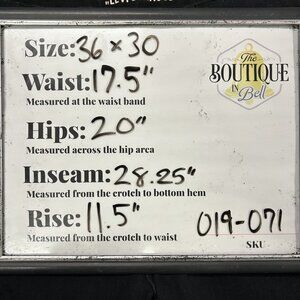 Size: 36 x 30
The
BOUTIQUE
IN
Bell
Waist: 17.5"
Measured at the waist band
Hips: 20"
Measured across the hip area
Inseam: 28.25"
Measured from the crotch to bottom hem
Rise: 11.5"
Measured from the crotch to waist
019-071
SKU